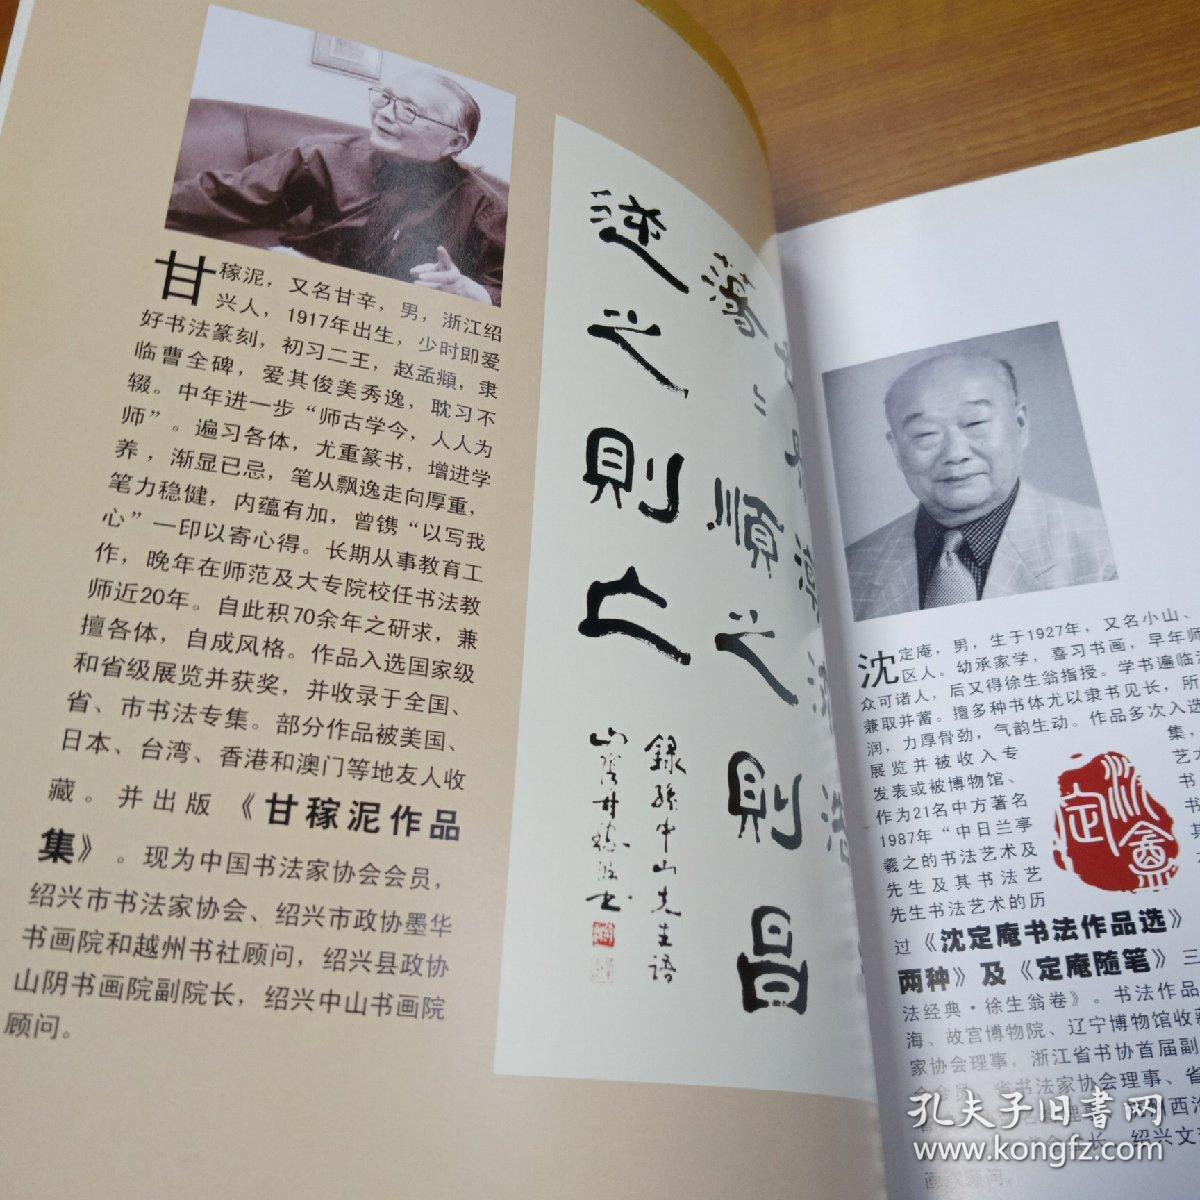 甘稼泥，又名甘辛，男，浙江绍
兴人，1917年出生，少时即爱
好书法篆刻，初习二王，赵孟頫，隶
临曹全碑，爱其俊美秀逸，耽习不
辍。中年进一步“师古学今，人人为
师”。遍习各体，尤重篆书，增进学
养，渐显已忌，笔从飘逸走向厚重，
笔力稳健，内蕴有加，曾镌“以写我
心”一印以寄心得。长期从事教育工
作，晚年在师范及大专院校任书法教
师近20年。自此积70余年之研求，兼
擅各体，自成风格。作品入选国家级
和省级展览并获奖，并收录于全国、
省、市书法专集。部分作品被美国、
日本、台湾、香港和澳门等地友人收
藏。并出版《甘稼泥作品
集》。现为中国书法家协会会员，
绍兴市书法家协会、绍兴市政协墨华
书画院和越州书社顾问，绍兴县政协
山阴书画院副院长，绍兴中山书画院
顾问。
蕩二順之則昌
逆之則亡
録孫中山先生語
沈定庵，男，生于1927年，又名小山、
区人。幼承家学，喜习书画，早年师
众可诸人，后又得徐生翁指授。学书遍临
兼取并蓄。擅多种书体尤以隶书见长，所
润，力厚骨劲，气韵生动。作品多次入选
展览并被收入专
集，
发表或被博物馆、
艺术
作为21名中方著名
书
1987年“中日兰亭
书
羲之的书法艺术及
其
先生及其书法艺
先生书法艺术的历
沈定庵
过《沈定庵书法作品选》
两种》及《定庵随笔》三
法经典·徐生翁卷》。书法作品
海、故宫博物院、辽宁博物馆收藏
家协会理事，浙江省书协首届副
会会员，省书法家协会理事、省
理事，杭州西泠
长，绍兴文
画院顾问。
孔夫子旧书网
www.kongfz.com